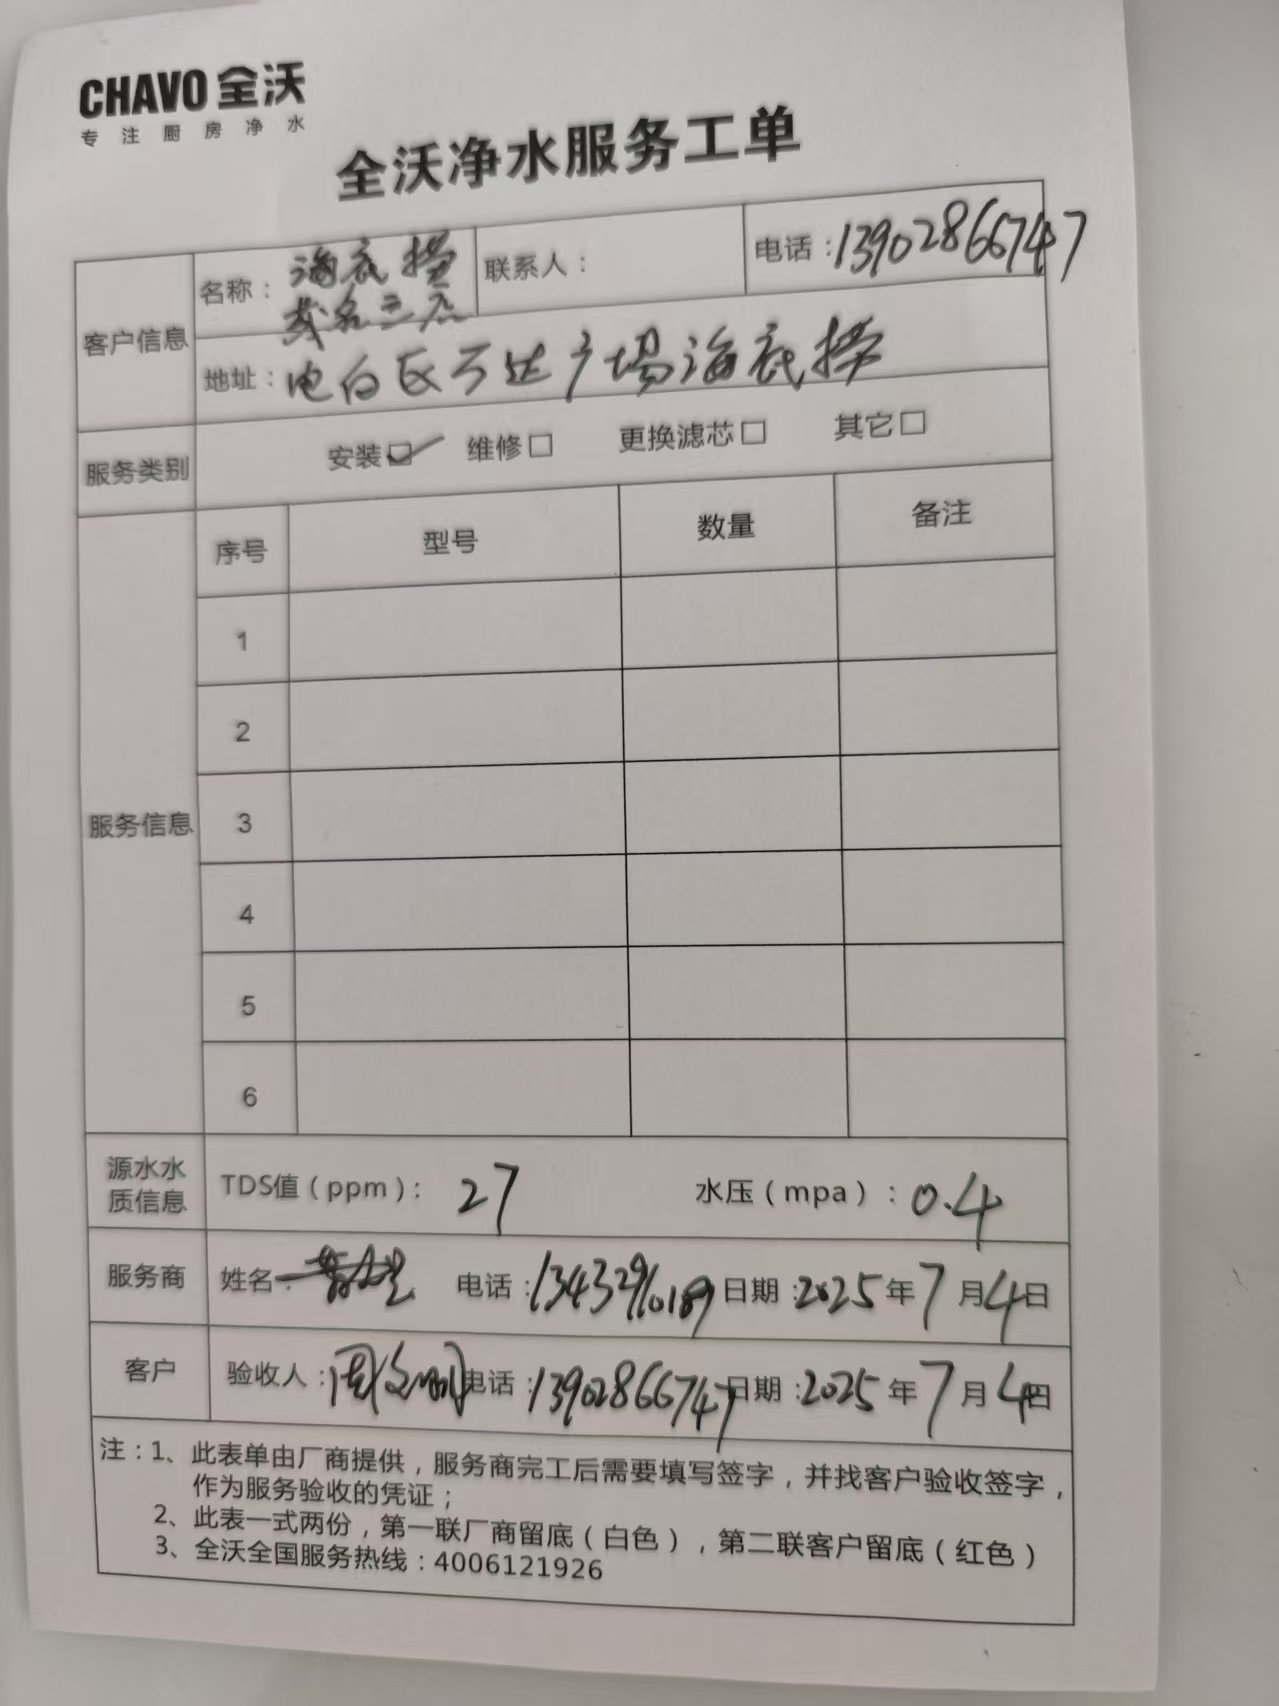 CHAVO 全沃
专注厨房净水
全沃净水服务工单
客户信息
名称：海底捞
茂名三店
联系人：
电话：13902866747
地址：电白区万达广场海底捞
服务类别
安装☑ 维修□ 更换滤芯□ 其它□
服务信息
序号 型号 数量 备注
1
2
3
4
5
6
源水水质信息
TDS值（ppm）： 27 水压（mpa）：0.4
服务商 姓名： 电话：13432960189 日期：2025年7月4日
客户 验收人：周 电话：13902866747 日期：2025年7月4日
注：1、此表单由厂商提供，服务商完工后需要填写签字，并找客户验收签字，
作为服务验收的凭证；
2、此表一式两份，第一联厂商留底（白色），第二联客户留底（红色）
3、全沃全国服务热线：4006121926